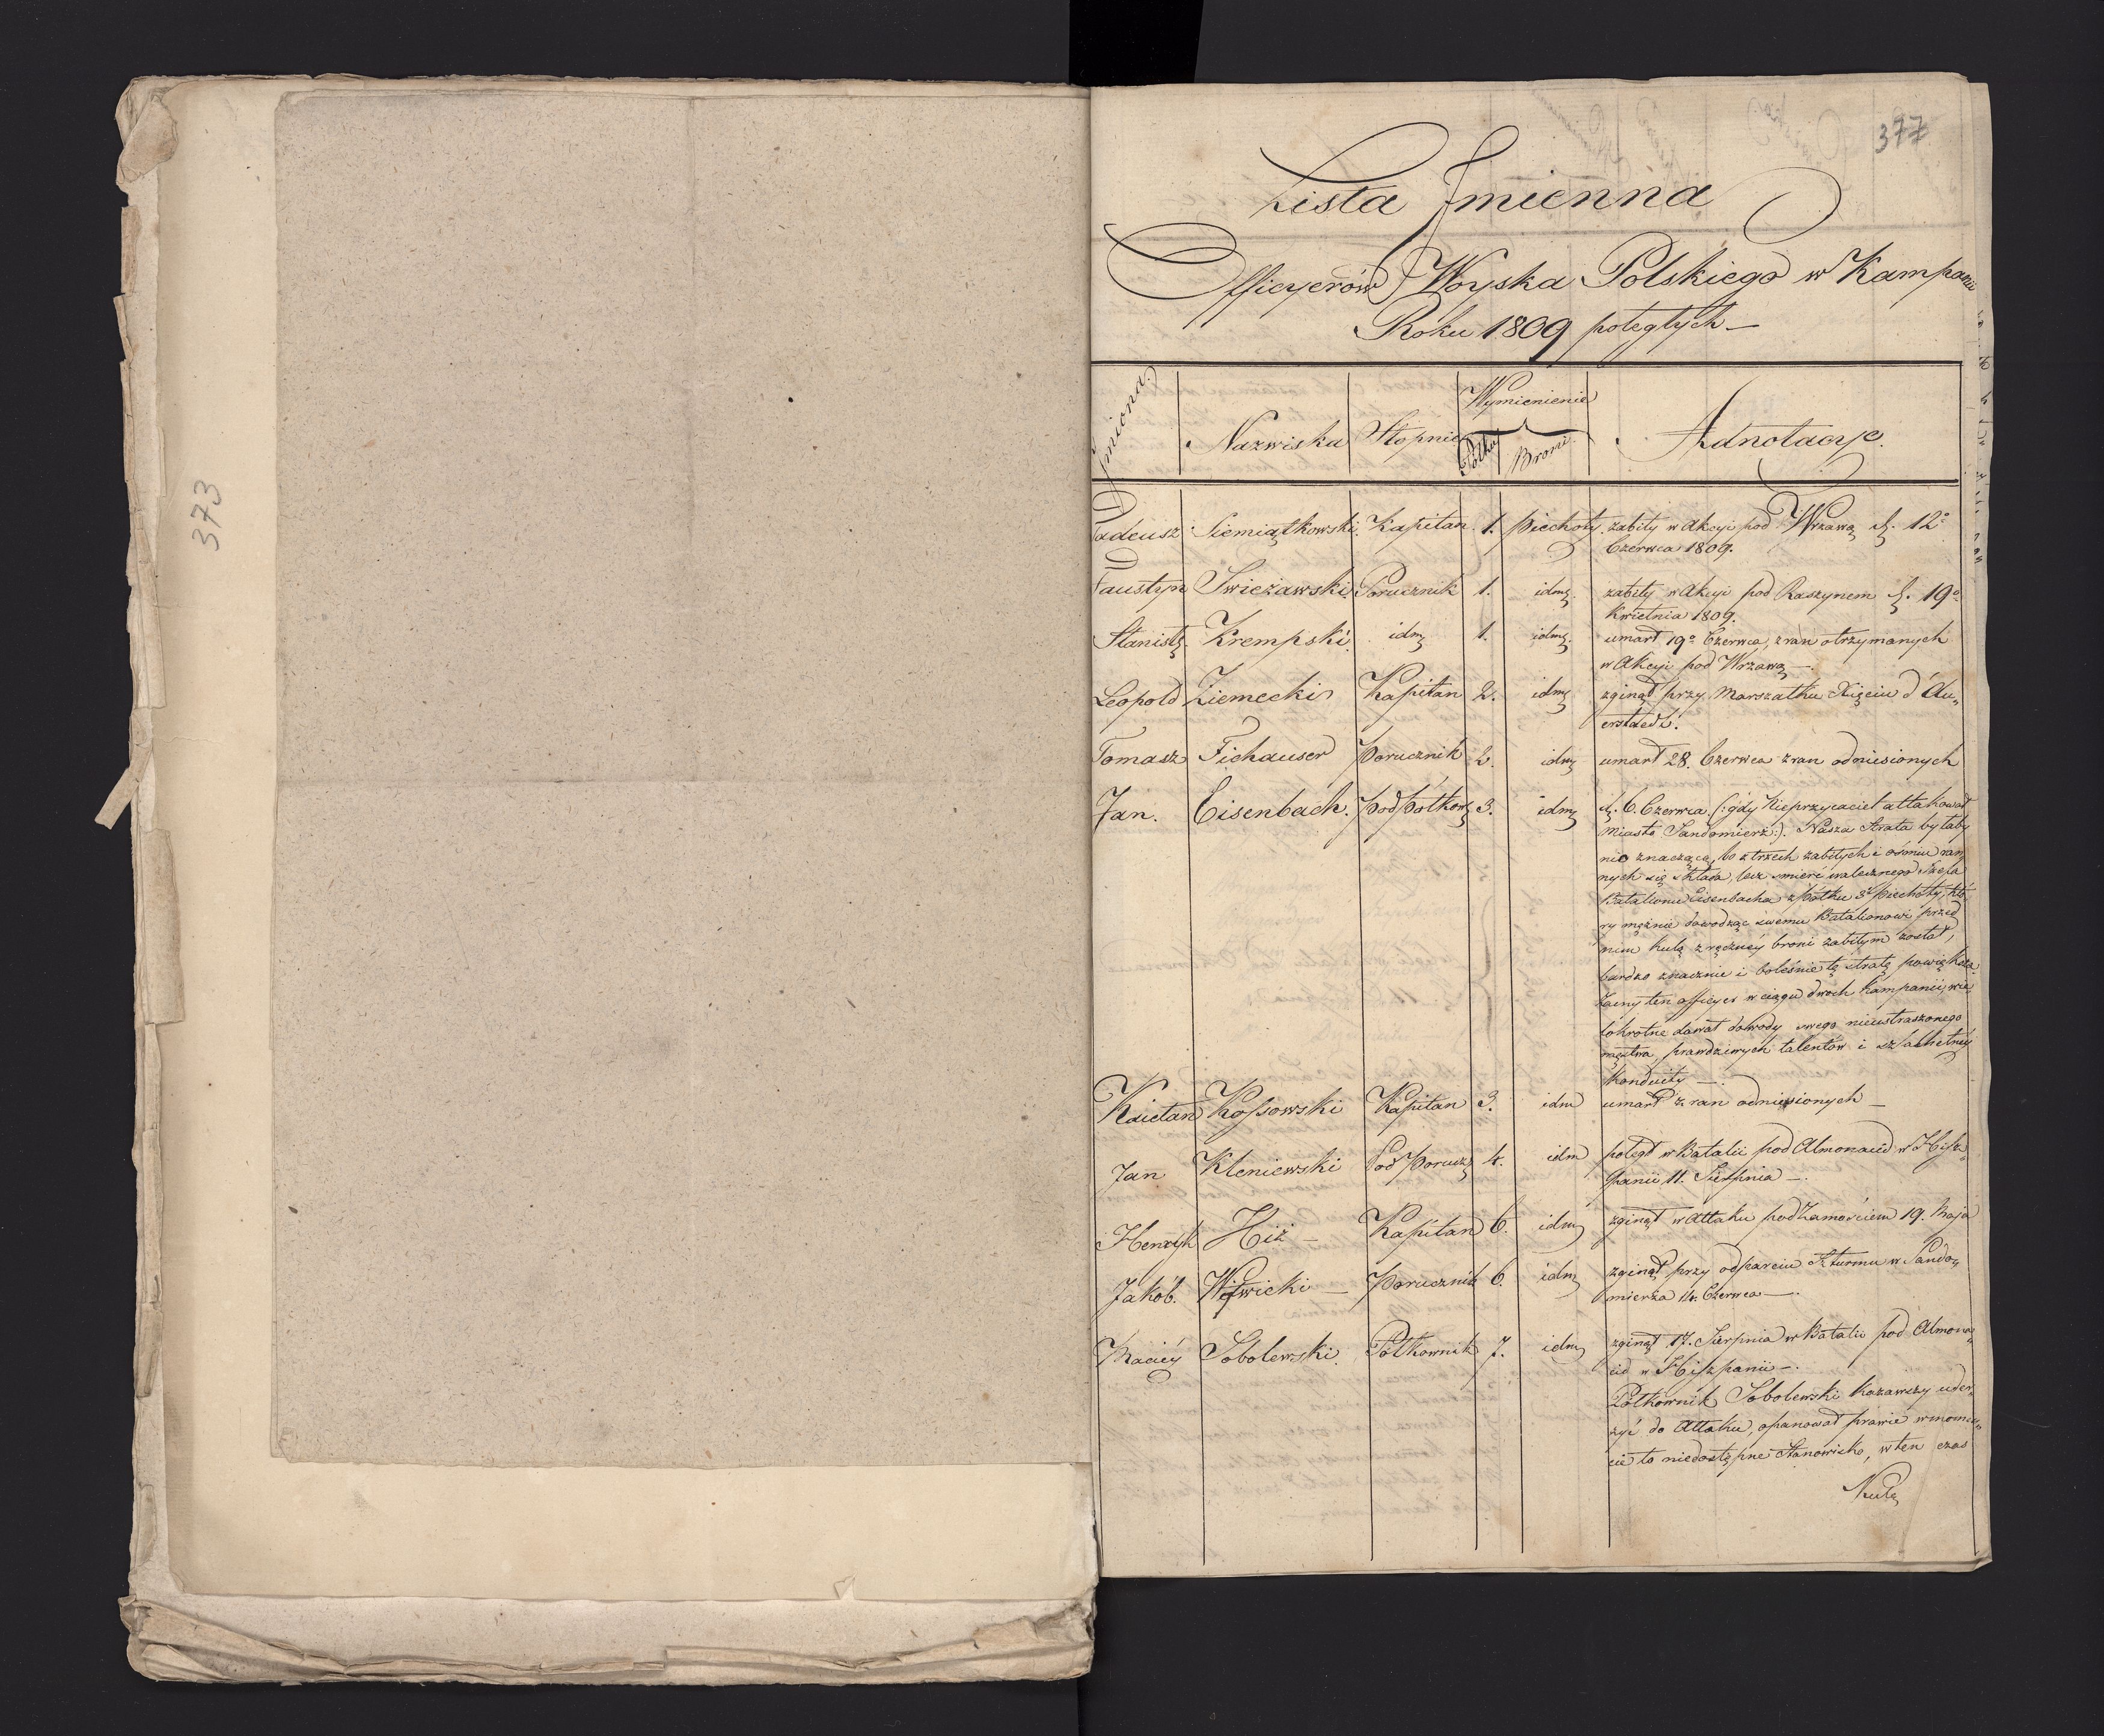 373
377
Lista Jmienna
Officyerów Woyska Polskiego w Kampanii
Roku 1809 poległych —
Jmiona
Nazwiska
Stopnie
Wymienienie
Półku
Broni.
Adnotacye.
Tadeusz Siemiątkowski. Kapitan. 1. piechoty. zabity w Akcyi pod Wrzawą d. 12º
Czerwca 1809.
Faustyn Swieżawski Porucznik 1. idm zabity w Akcyi pod Raszynem d. 19º
Kwietnia 1809.
Stanisł. Krempski idm 1. idm. umarł 19º Czerwca, z ran otrzymanych
w Akcyi pod Wrzawą —.
Leopold Ziemecki Kapitan 2. idm zginął przy Marszałku Xięciu d'Au„
erstaedt.
Tomasz Fichauser Porucznik 2. idm umarł 28. Czerwca z ran odniesionych
Jan. Eisenbach. Podpółkow 3. idm d. 6. Czerwca (: gdy Nieprzyiaciel attakował
Miasto Sandomierz :). Nasza Strata byłaby
nio znaczącą, bo z trzech zabitych i ośmiu ran
nych się składa, lecz smierć walecznego Szefa
Batalionu Eisenbacha z Półku 3º piechoty, któ
ry mężnie dowodząc swemu Batalionowi przed
nim kulą z ręczney broni zabitym został,
bardzo znacznie i boleśnie tę stratę powiększa.
Zacny ten officyer w ciągu dwoch Kampanii, wie
lokrotne dawał dowody swego nieustraszonego
męztwa, prawdziwych talentów i szlachetney
Konduity —.
Kaietan Kossowski Kapitan 3. idm umarł z ran odniesionych —
Jan Kleniewski Pod Porucz 4. idm poległ w Batalii pod Almonacid w Hisz„
Panii 11. Sierpnia —.
Henryk Hiż — Kapitan 6. idm zginął w Attaku pod Zamościem 19. Maja
Jakób. Woywicki — Porucznik 6. idm zginął przy odparciu Szturmu w Sando„
mierza 14. Czerwca —.
Maciey Sobolewski. Półkownik 7. idm zginął 17. Sierpnia w Batalii pod Almona„
cid w Hiszpanii —.
Półkownik Sobolewski Kazawszy uder„
zyć do Attaku, opanował prawie w momen„
cie to niedostępne Stanowisko, w ten czas
Kulą